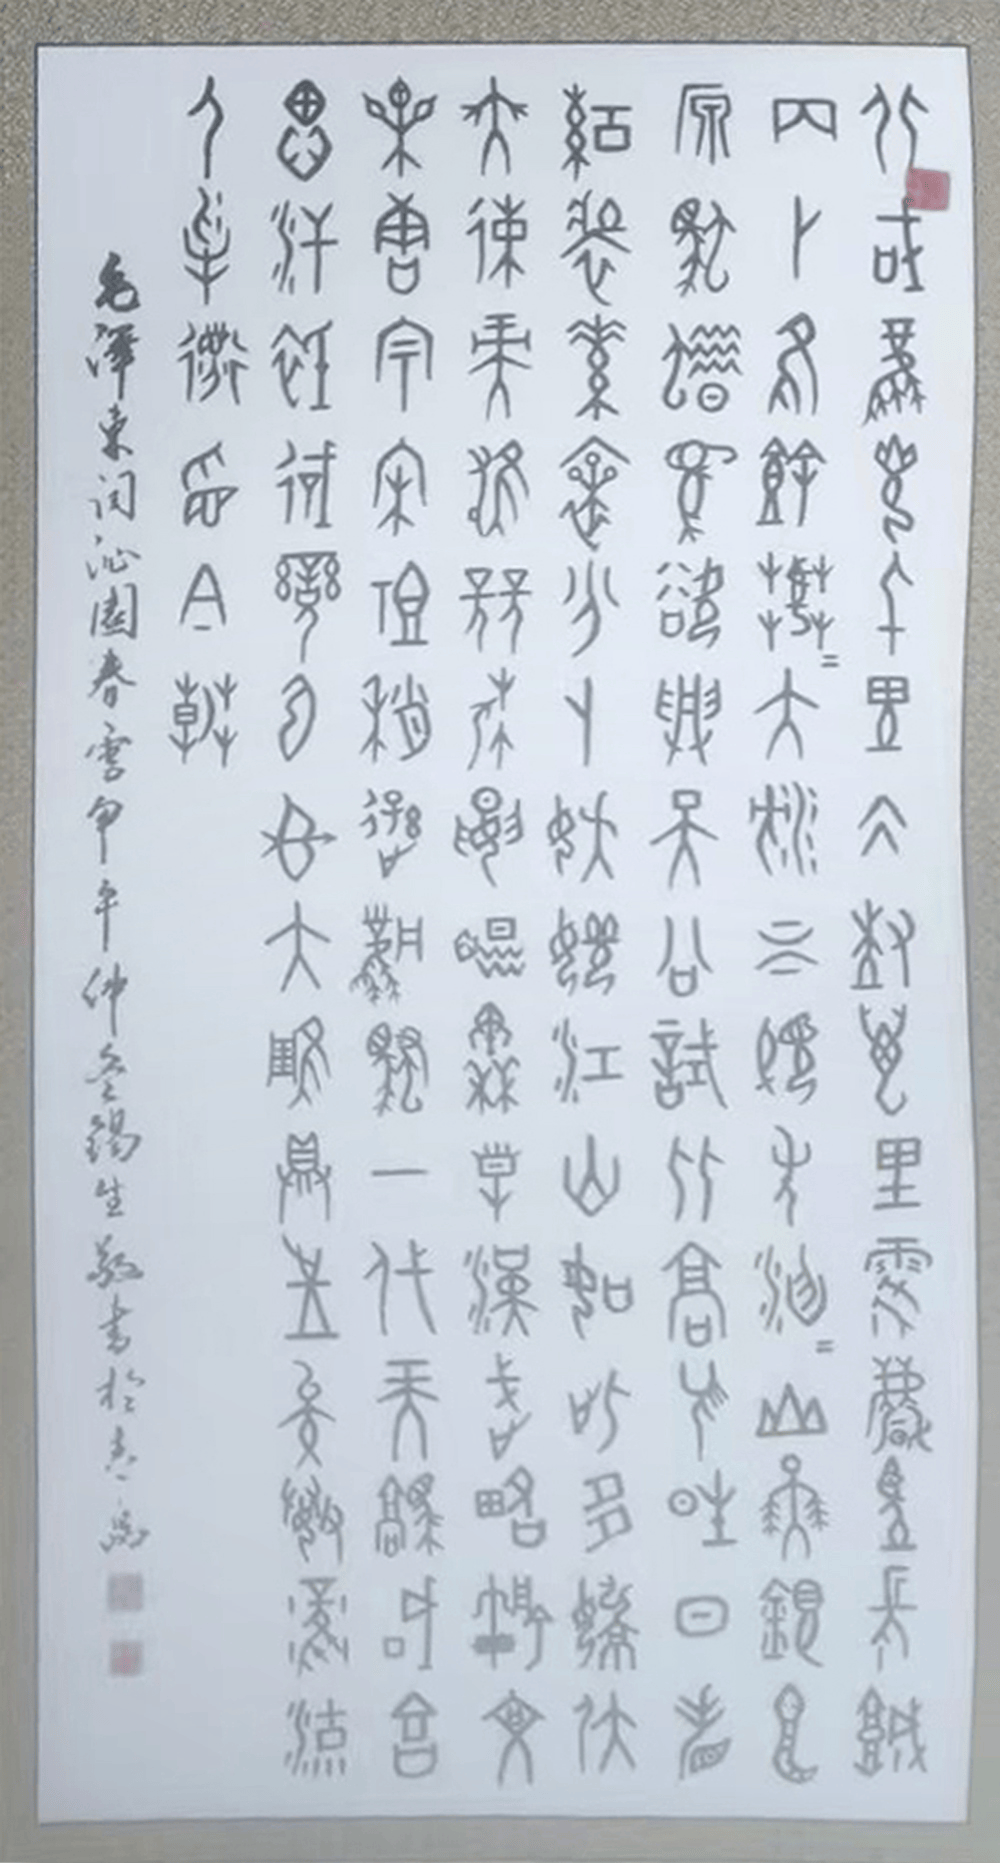 北國風光千里冰封萬里雪飄望長城
內外惟餘莽〓大河上下頓失滔〓山舞銀蛇
原馳蠟象欲與天公試比高須晴日看
紅裝素裹分外妖嬈江山如此多嬌引
無數英雄競折腰惜秦皇漢武略輸文
采唐宗宋祖稍遜風騷一代天驕成吉
思汗只識彎弓射大雕俱往矣數風流
人物還看今朝
毛澤東词沁園春雪甲午仲冬錫生敬書於青島